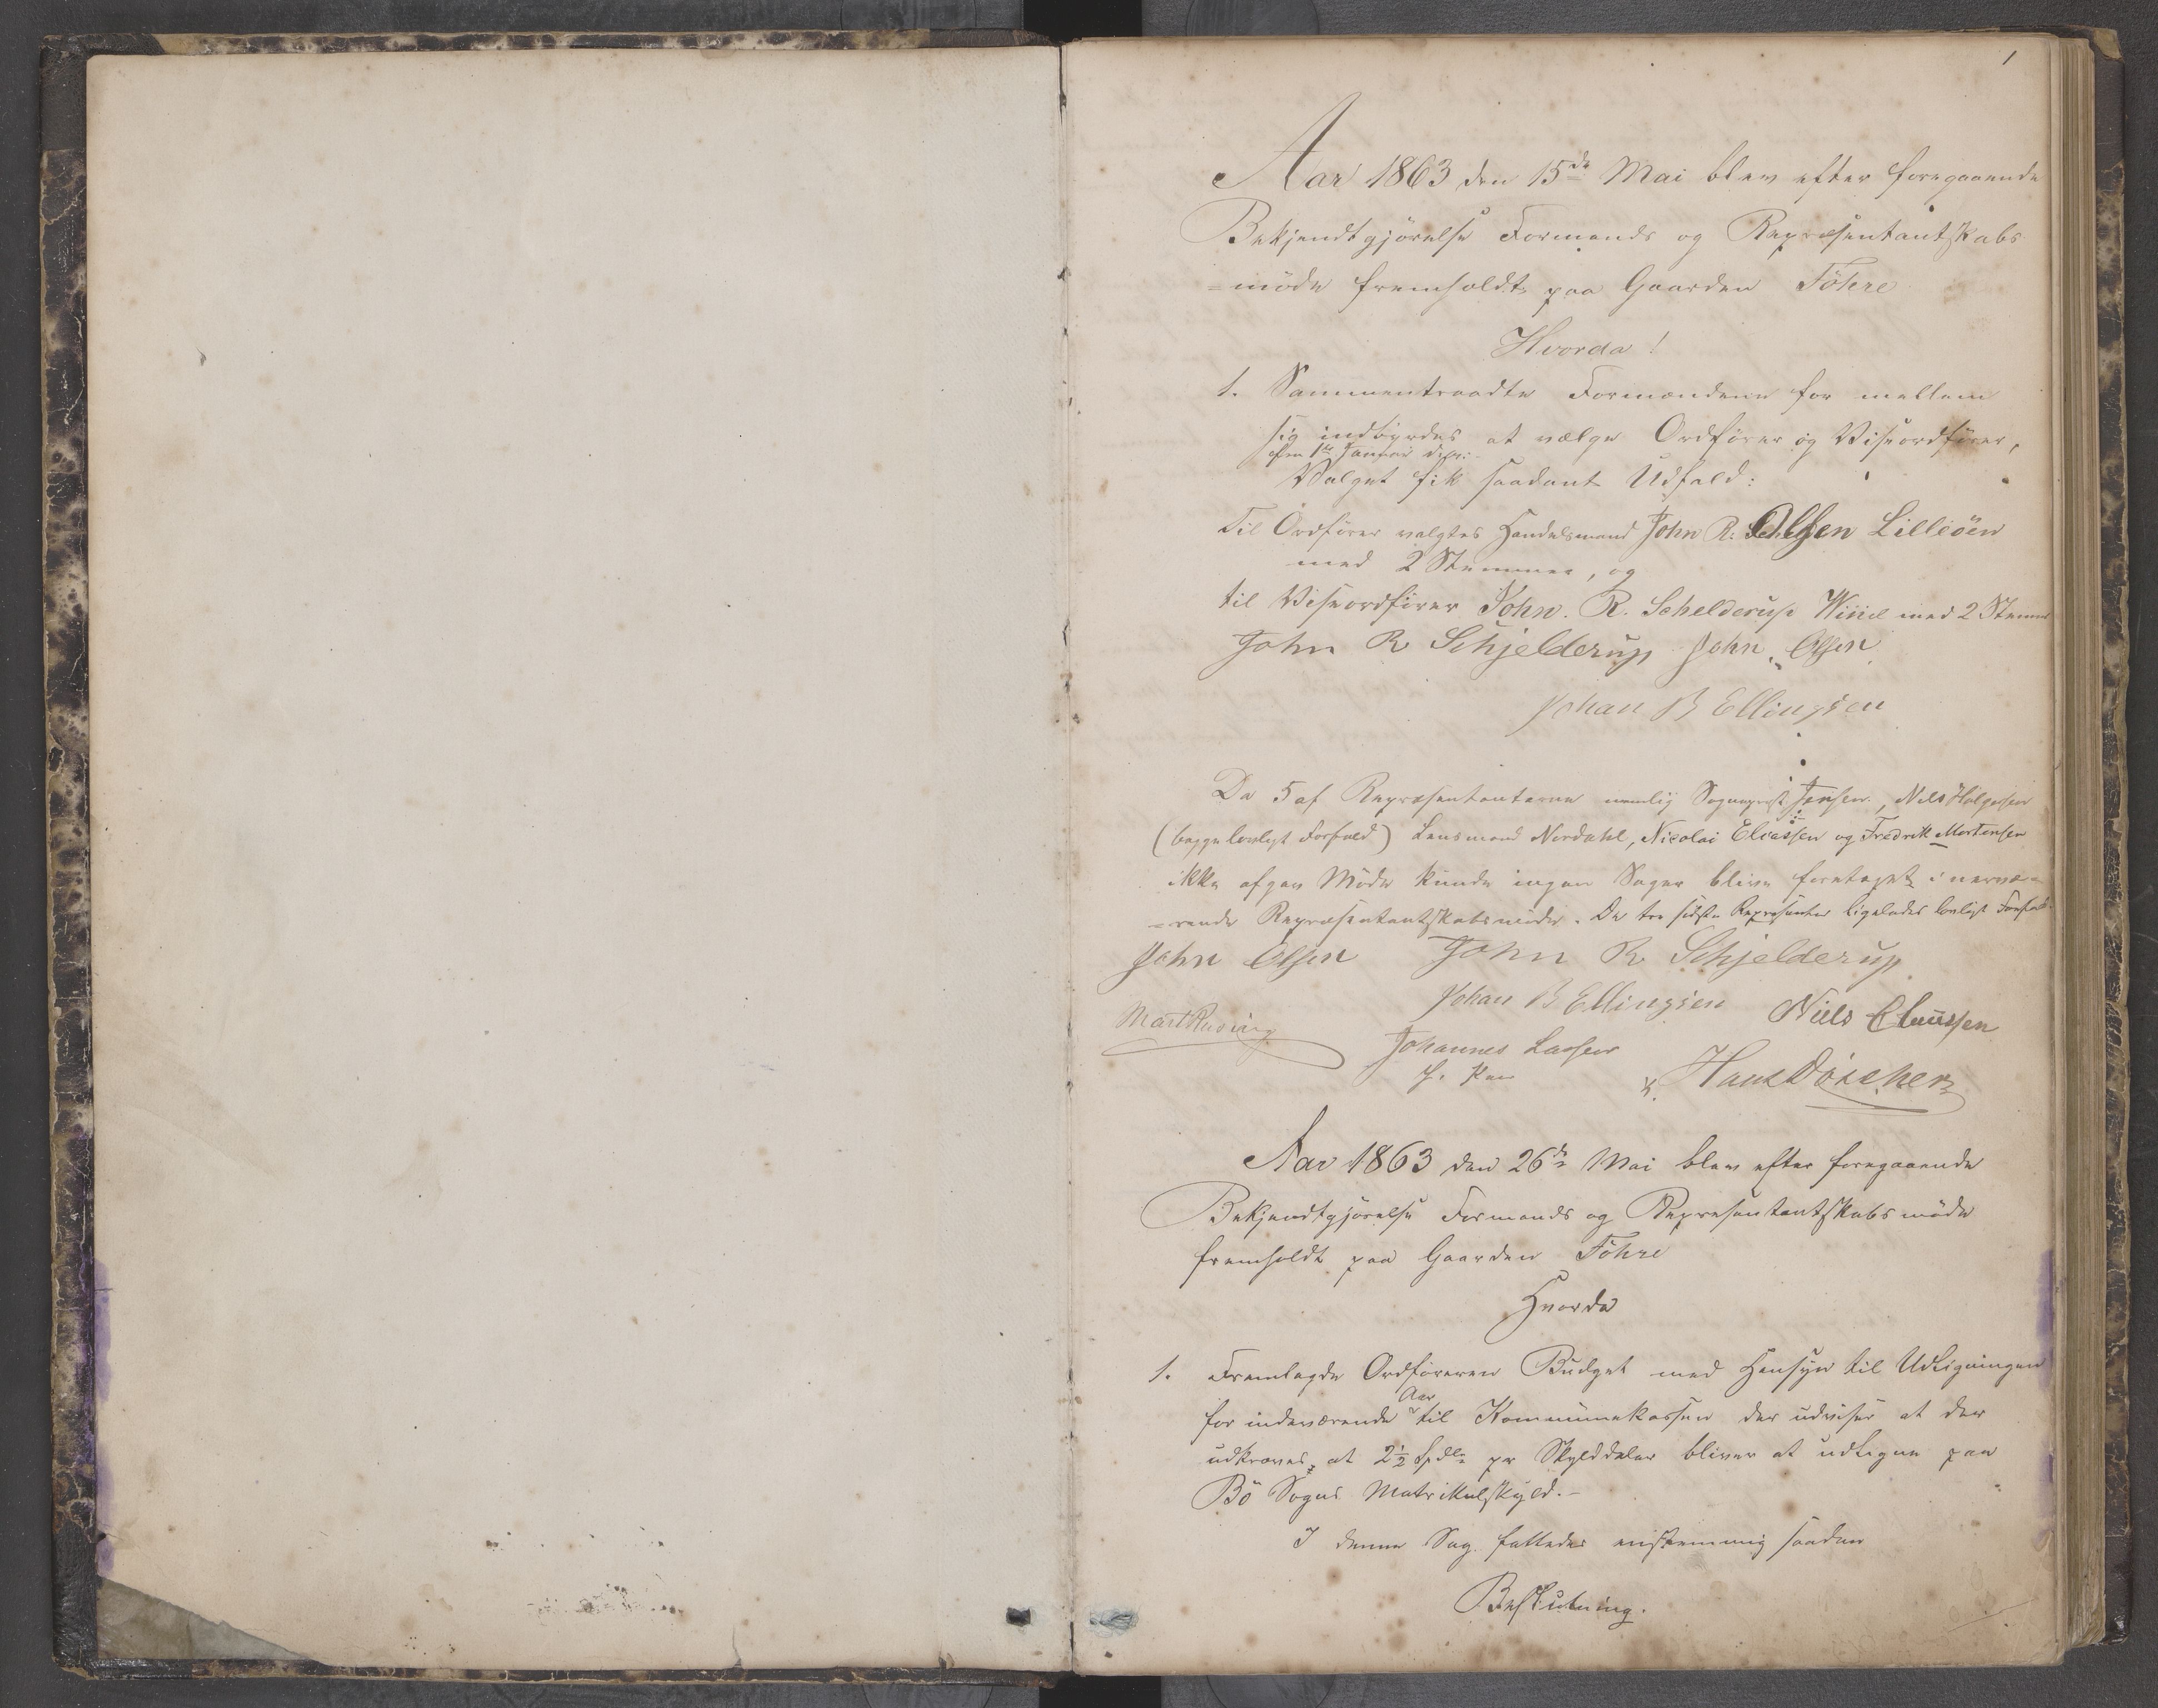 1
Aar 1863 den 15de Mai blev efter foregaaende
Bekjendtgjörelse Formands og Repræsentantskabs
=möde fremholdt paa Gaarden Föhre
Hvorda!
1. Sammentraadte Formændene for mellem
sig indbyrdes at vælge Ordförer og Viseordförer,
fra 1ste Januar
Valget fik saadant Udfald:
Til Ordförer valgtes Handelsmand John R: Olsen Lilleöen
med 2 Stemmer, og
til Viseordförer John. R. Schelderup Wiiid med 2 Stemmer
John R Schjelderup John Olsen
Johan B Ellingsen
Da 5 af Repræsentanterne nemlig Sogneprest Jensen, Nils Helgesen
(begge lovligt Forfald) Lensmand Nordahl, Nicolai Eliassen og Fredrik Mortensen
ikke afgav Möde kunde ingen Sager blive foretaget i nærvæ=
=rende Repræsentantskabsmöde. De tre sidste Repræsenter ligeledes lovligt Forfald.
John Olsen John R Schjelderup
Johan B Ellingsen Niels Claussen
Mart Rusing
Johannes Larsen
Hans Döscher
Aar 1863 den 26de Mai blev efter foregaaende
Bekjendtgjörelse Formands og Repræsentantskabsmöde
fremholdt paa Gaarden Föhre
Hvorda
1. Fremlagde Ordföreren Budget med Hensyn til Udligningen
for indeværende Aar til Kommunekassen der udviser at der
udkræves, at 2½ Spdlr pr Skylddaler bliver at udligne paa
Bö Sogns Matrikulskyld.-
I denne Sag fattedes enstemmig saadan
Beslutning.